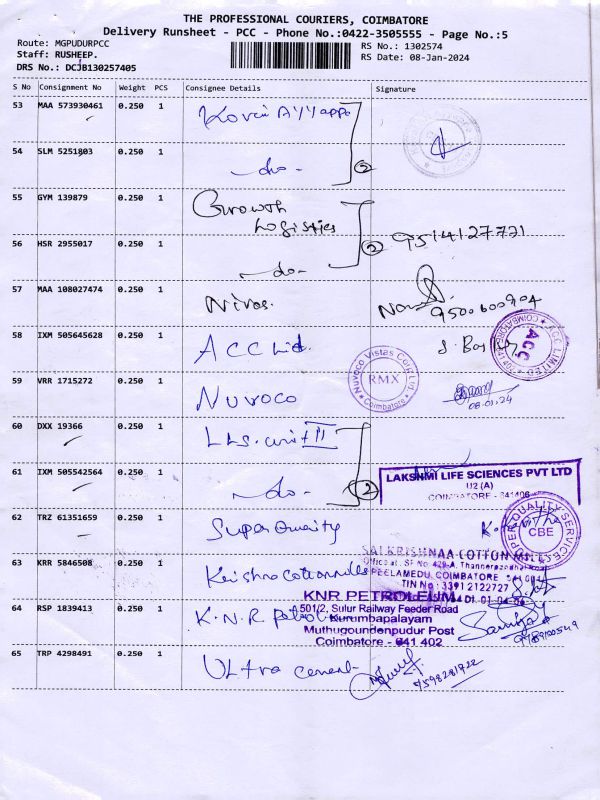 THE PROFESSIONAL COURIERS, COIMBATORE
Delivery Runsheet - PCC - Phone No.:0422-3505555 - Page No.:5
Route: MGPUDURPCC
Staff: RUSHEEP.
DRS No.: DCJB130257405
RS No.: 1302574
RS Date: 08-Jan-2024
S No Consignment No Weight PCS Consignee Details Signature
53 MAA 573930461 0.250 1
54 SLM 5251803 0.250 1 -do- 2
55 GYM 139879 0.250 1 Growth Logistics
9514127721
56 HSR 2955017 0.250 1 -do- 2
57 MAA 108027474 0.250 1 Nivas.
9500600904
58 IXM 505645628 0.250 1 ACC Ltd.
ACC LIMITED
59 VRR 1715272 0.250 1 Nuvoco
Nuvoco Vistas Corp Ltd.
RMX
Coimbatore
08.01.24
60 DXX 19366 0.250 1 LLS. unit II
61 IXM 505542564 0.250 1 -do- 2
LAKSHMI LIFE SCIENCES PVT LTD
U2 (A)
COIMBATORE - 641406
62 TRZ 61351659 0.250 1 Super Quality
SUPER QUALITY SERVICES
CBE
63 KRR 5846508 0.250 1 Krishna cotton mills
SAI KRISHNAA COTTON MILLS
PEELAMEDU, COIMBATORE
TIN No : 3391 2122727
64 RSP 1839413 0.250 1 K.N.R Petroleum
KNR PETROLEUM
501/2, Sulur Railway Feeder Road
Kurumbapalayam
Muthugoundenpudur Post
Coimbatore - 641 402
65 TRP 4298491 0.250 1 Ultra cement